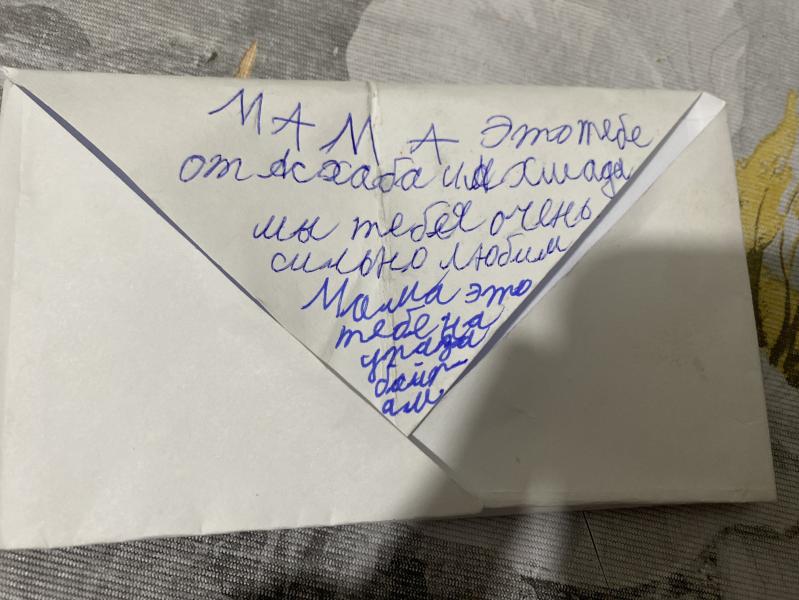 МАМА Это тебе
от Асхаба и Ахшада
мы тебя очень
сильно любим
Мама это
тебе на
ураза
байр
ам.